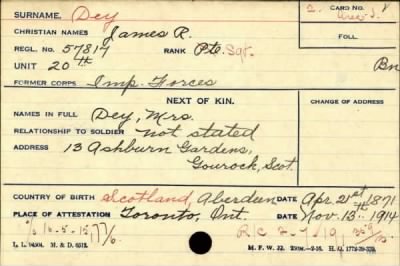 SURNAME. Dey
CARD NO.
2.
CHRISTIAN NAMES James R.
FOLL.
REGL. NO. 57817 RANK Pte. Sgt.
UNIT 20th Bn
FORMER CORPS Imp. Forces
NEXT OF KIN.
CHANGE OF ADDRESS
NAMES IN FULL Dey, Mrs.
RELATIONSHIP TO SOLDIER not stated
ADDRESS 13 Ashburn Gardens,
Gourock, Scot.
COUNTRY OF BIRTH Scotland, Aberdeen DATE Apr. 21st 1871
PLACE OF ATTESTATION Toronto, Ont. DATE Nov. 13th 1914
15-5-15
R/C 2-7-19
L. L. M. & D. M. F. W. 22. H. Q.